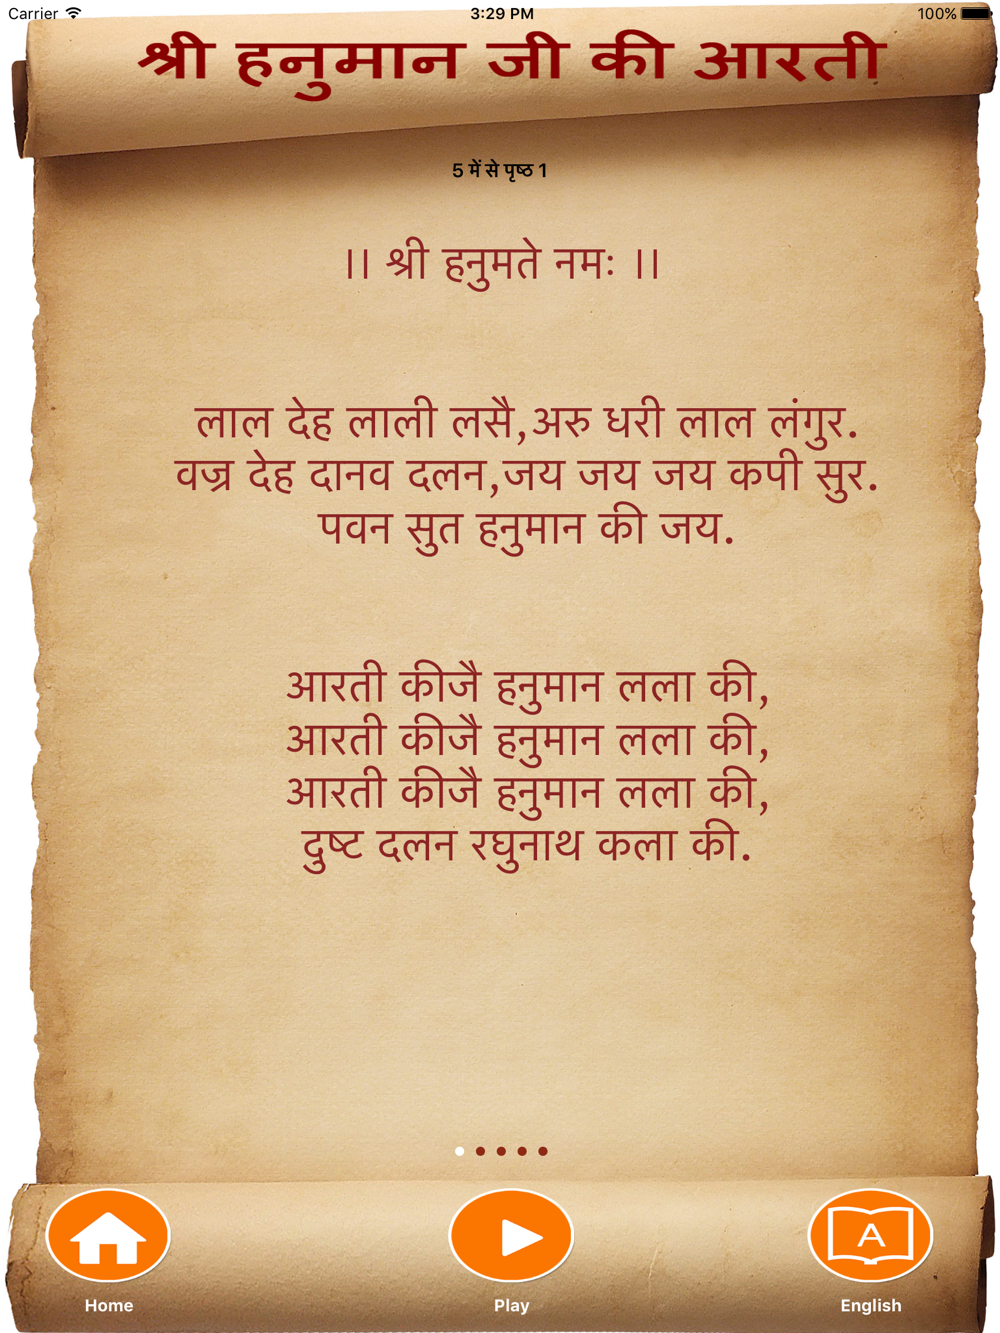 Carrier 3:29 PM 100%
श्री हनुमान जी की आरती
5 में से पृष्ठ 1
।। श्री हनुमते नमः ।।
लाल देह लाली लसै,अरु धरी लाल लंगुर.
वज्र देह दानव दलन,जय जय जय कपी सुर.
पवन सुत हनुमान की जय.
आरती कीजै हनुमान लला की,
आरती कीजै हनुमान लला की,
आरती कीजै हनुमान लला की,
दुष्ट दलन रघुनाथ कला की.
A
Home Play English